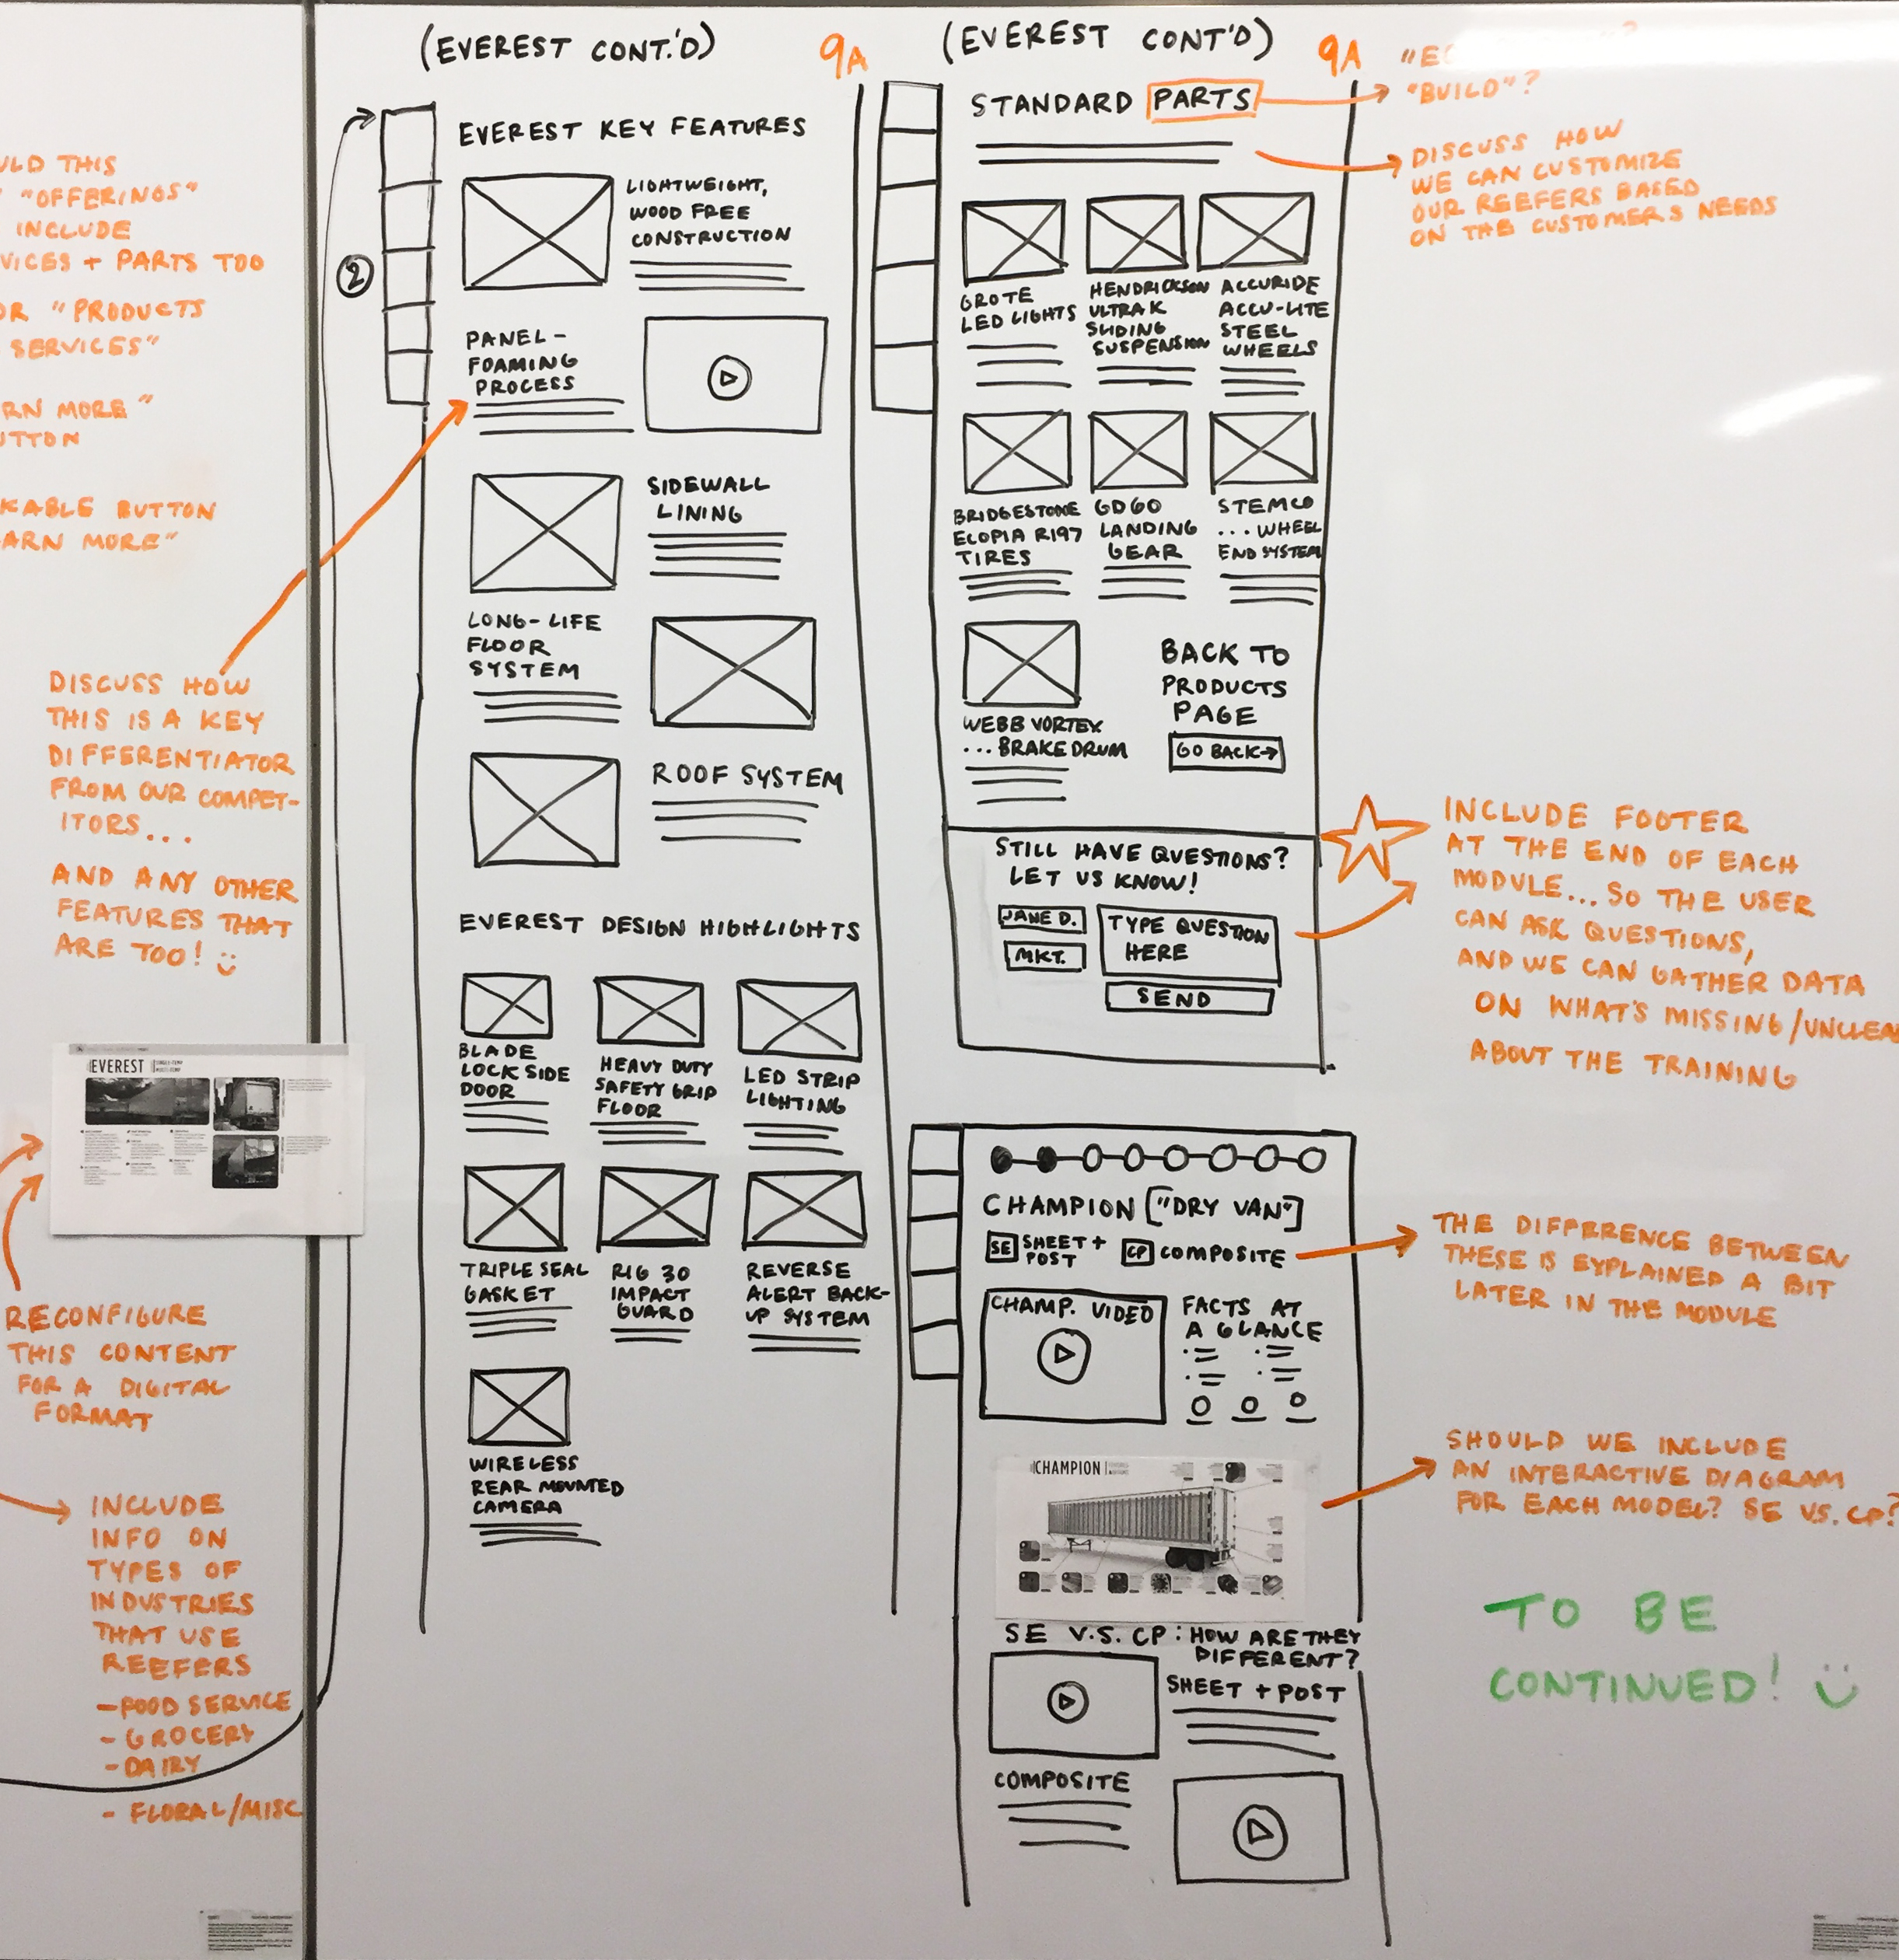 ULD THIS
"OFFERINGS"
INCLUDE
VICES + PARTS TOO
OR "PRODUCTS
SERVICES"
RN MORE"
UTTON
KABLE BUTTON
ARN MORE"
DISCUSS HOW
THIS IS A KEY
DIFFERENTIATOR
FROM OUR COMPET-
ITORS...
AND ANY OTHER
FEATURES THAT
ARE TOO!
EVEREST
RECONFIGURE
THIS CONTENT
FOR A DIGITAL
FORMAT
INCLUDE
INFO ON
TYPES OF
INDUSTRIES
THAT USE
REEFERS
- FOOD SERVICE
- GROCERY
- DAIRY
- FLORAL/MISC
(EVEREST CONT.'D)
9A
2
EVEREST KEY FEATURES
LIGHTWEIGHT,
WOOD FREE
CONSTRUCTION
PANEL-
FOAMING
PROCESS
SIDEWALL
LINING
LONG-LIFE
FLOOR
SYSTEM
ROOF SYSTEM
EVEREST DESIGN HIGHLIGHTS
BLADE
LOCK SIDE
DOOR
HEAVY DUTY
SAFETY GRIP
FLOOR
LED STRIP
LIGHTING
TRIPLE SEAL
GASKET
RIG 30
IMPACT
GUARD
REVERSE
ALERT BACK-
UP SYSTEM
WIRELESS
REAR MOUNTED
CAMERA
(EVEREST CONT'D)
9A
STANDARD PARTS
"BUILD"?
DISCUSS HOW
WE CAN CUSTOMIZE
OUR REEFERS BASED
ON THE CUSTOMERS NEEDS
GROTE
LED LIGHTS
HENDRICKSON
ULTRA K
SLIDING
SUSPENSION
ACCURIDE
ACCU-LITE
STEEL
WHEELS
BRIDGESTONE
ECOPIA R197
TIRES
GD60
LANDING
GEAR
STEMCO
... WHEEL
END SYSTEM
WEBB VORTEX
... BRAKE DRUM
BACK TO
PRODUCTS
PAGE
GO BACK→
STILL HAVE QUESTIONS?
LET US KNOW!
JANE D.
MKT.
TYPE QUESTION
HERE
SEND
INCLUDE FOOTER
AT THE END OF EACH
MODULE... SO THE USER
CAN ASK QUESTIONS,
AND WE CAN GATHER DATA
ON WHAT'S MISSING/UNCLEA
ABOUT THE TRAINING
CHAMPION ["DRY VAN"]
SE SHEET +
POST
CP COMPOSITE
THE DIFFERENCE BETWEEN
THESE IS EXPLAINED A BIT
LATER IN THE MODULE
CHAMP. VIDEO
FACTS AT
A GLANCE
CHAMPION
SHOULD WE INCLUDE
AN INTERACTIVE DIAGRAM
FOR EACH MODEL? SE VS. CP?
SE V.S. CP: HOW ARE THEY
DIFFERENT?
SHEET + POST
COMPOSITE
TO BE
CONTINUED!